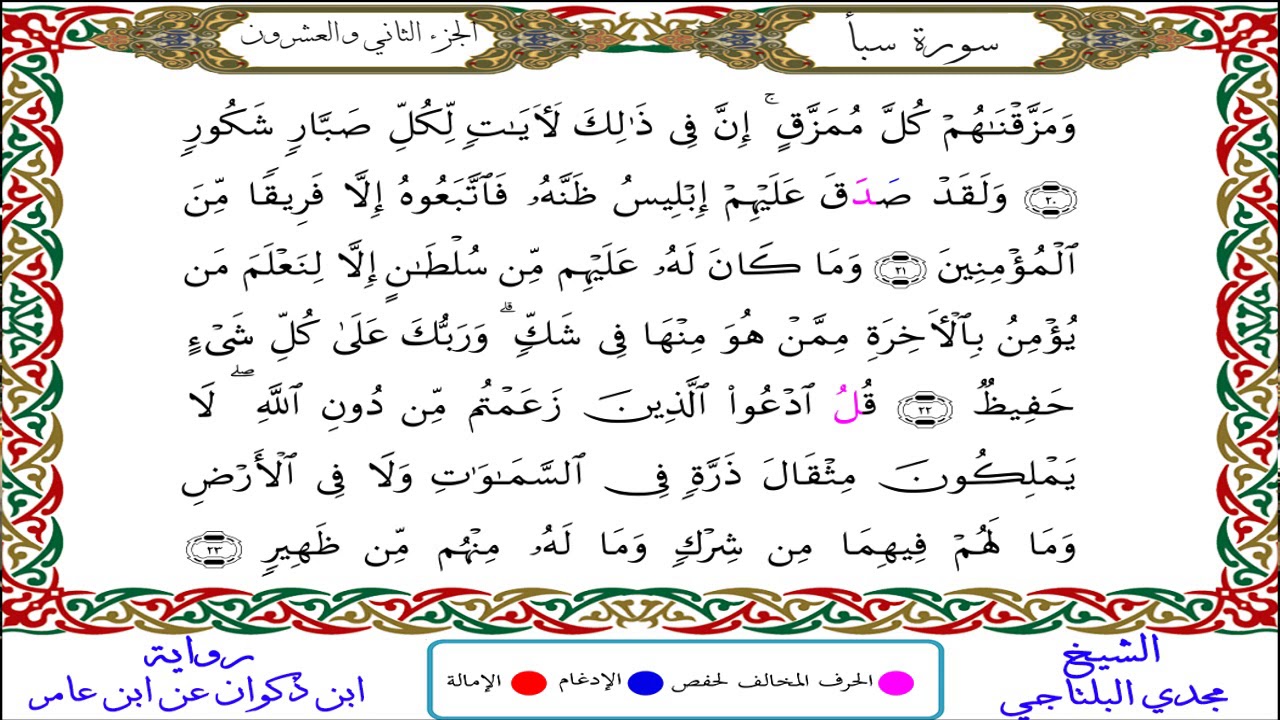 سورة سبأ
الجزء الثاني والعشرون
وَمَزَّقْنَٰهُمْ كُلَّ مُمَزَّقٍ ۚ إِنَّ فِى ذَٰلِكَ لَأَيَٰتٍ لِّكُلِّ صَبَّارٍ شَكُورٍ
٢٠ وَلَقَدْ صَدَقَ عَلَيْهِمْ إِبْلِيسُ ظَنَّهُۥ فَٱتَّبَعُوهُ إِلَّا فَرِيقًا مِّنَ
ٱلْمُؤْمِنِينَ ٢١ وَمَا كَانَ لَهُۥ عَلَيْهِم مِّن سُلْطَٰنٍ إِلَّا لِنَعْلَمَ مَن
يُؤْمِنُ بِٱلْأَخِرَةِ مِمَّنْ هُوَ مِنْهَا فِى شَكٍّ ۗ وَرَبُّكَ عَلَىٰ كُلِّ شَىْءٍ
حَفِيظٌ ٢٢ قُلُ ٱدْعُوا۟ ٱلَّذِينَ زَعَمْتُم مِّن دُونِ ٱللَّهِ ۖ لَا
يَمْلِكُونَ مِثْقَالَ ذَرَّةٍ فِى ٱلسَّمَٰوَٰتِ وَلَا فِى ٱلْأَرْضِ
وَمَا لَهُمْ فِيهِمَا مِن شِرْكٍ وَمَا لَهُۥ مِنْهُم مِّن ظَهِيرٍ ٢٣
الشيخ
مجدي البلتاجي
الحرف المخالف لحفص الإدغام الإمالة
رواية
ابن ذكوان عن ابن عامر